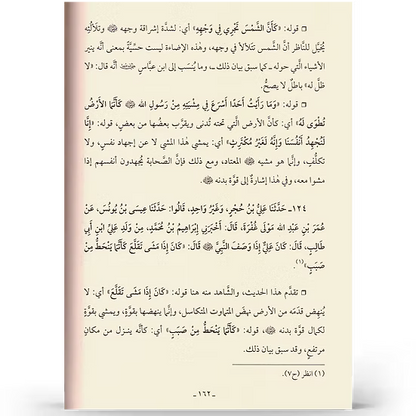 □ قوله: «كَأَنَّ الشَّمْسَ تَجْرِي فِي وَجْهِهِ» أي: لشدَّة إشراقة وجهه ﷺ وتلألُئِه
يُخيَّل للنَّاظر أنَّ الشَّمس تتلألأ في وجهه، وهذه الإضاءة ليست حسِّيَّة بمعنى أنَّه ينير
الأشياء الَّتي حوله ـ كما سبق بيان ذلك ـ، وما يُنسَب إلى ابن عبَّاس أنَّه قال: «لا
ظلَّ له» باطلٌ لا يصحُّ.
□ قوله: «وَمَا رَأَيْتُ أَحَدًا أَسْرَعَ فِي مِشْيَتِهِ مِنْ رَسُولِ الله ﷺ كَأَنَّمَا الأَرْضُ
تُطْوَى لَهُ» أي: كأنَّ الأرض الَّتي تحته تُدنى ويقرَّب بعضُها من بعضٍ، قوله: «إِنَّا
لَنُجْهِدُ أَنْفُسَنَا وَإِنَّهُ لَغَيْرُ مُكْتَرِثٍ» أي: يمشي هٰذا المشي لا عن إجهاد نفسٍ، ولا
تكلُّفٍ، وإنَّما هو مشيه ﷺ المعتاد، ومع ذلك فإنَّ الصَّحابة يُجهدون أنفسهم إذا
مشوا معه، وفي هٰذا إشارةٌ إلى قوَّة بدنه ﷺ.
١٢٤ـ حَدَّثَنَا عَلِيُّ بْنُ حُجْرٍ، وَغَيْرُ وَاحِدٍ، قَالُوا: حَدَّثَنَا عِيسَى بْنُ يُونُسَ، عَنْ
عُمَرَ بْنِ عَبْدِ الله مَوْلَى غُفْرَةَ، قَالَ: أَخْبَرَنِي إِبْرَاهِيمُ بْنُ مُحَمَّدٍ، مِنْ وَلَدِ عَلِيِّ ابْنِ أَبِي
طَالِبٍ، قَالَ: كَانَ عَلِيٌّ إِذَا وَصَفَ النَّبِيَّ ﷺ قَالَ: «كَانَ إِذَا مَشَى تَقَلَّعَ كَأَنَّمَا يَنْحَطُّ مِنْ
صَبَبٍ»(١).
□ تقدَّم هذا الحديث، والشَّاهد منه هنا قوله: «كَانَ إِذَا مَشَى تَقَلَّعَ» أي: لا
يُنهِض قدمَه من الأرض نهضَ المتماوت المتكاسل، وإنَّما ينهضها بقوَّةٍ، ويمشي بقوَّةٍ
لكمال قوَّة بدنه ﷺ، قوله: «كَأَنَّمَا يَنْحَطُّ مِنْ صَبَبٍ» أي: كأنَّه ينـزل من مكانٍ
مرتفعٍ، وقد سبق بيان ذلك.
(١) انظر (ح٧).
ـ ١٦٢ ـ